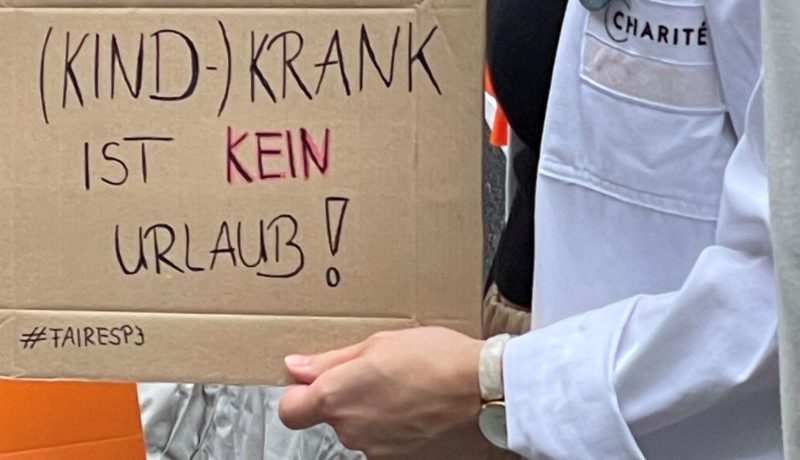 (KIND-) KRANK
IST KEIN
URLAUB!
#FAIRESPJ
CHARITÉ